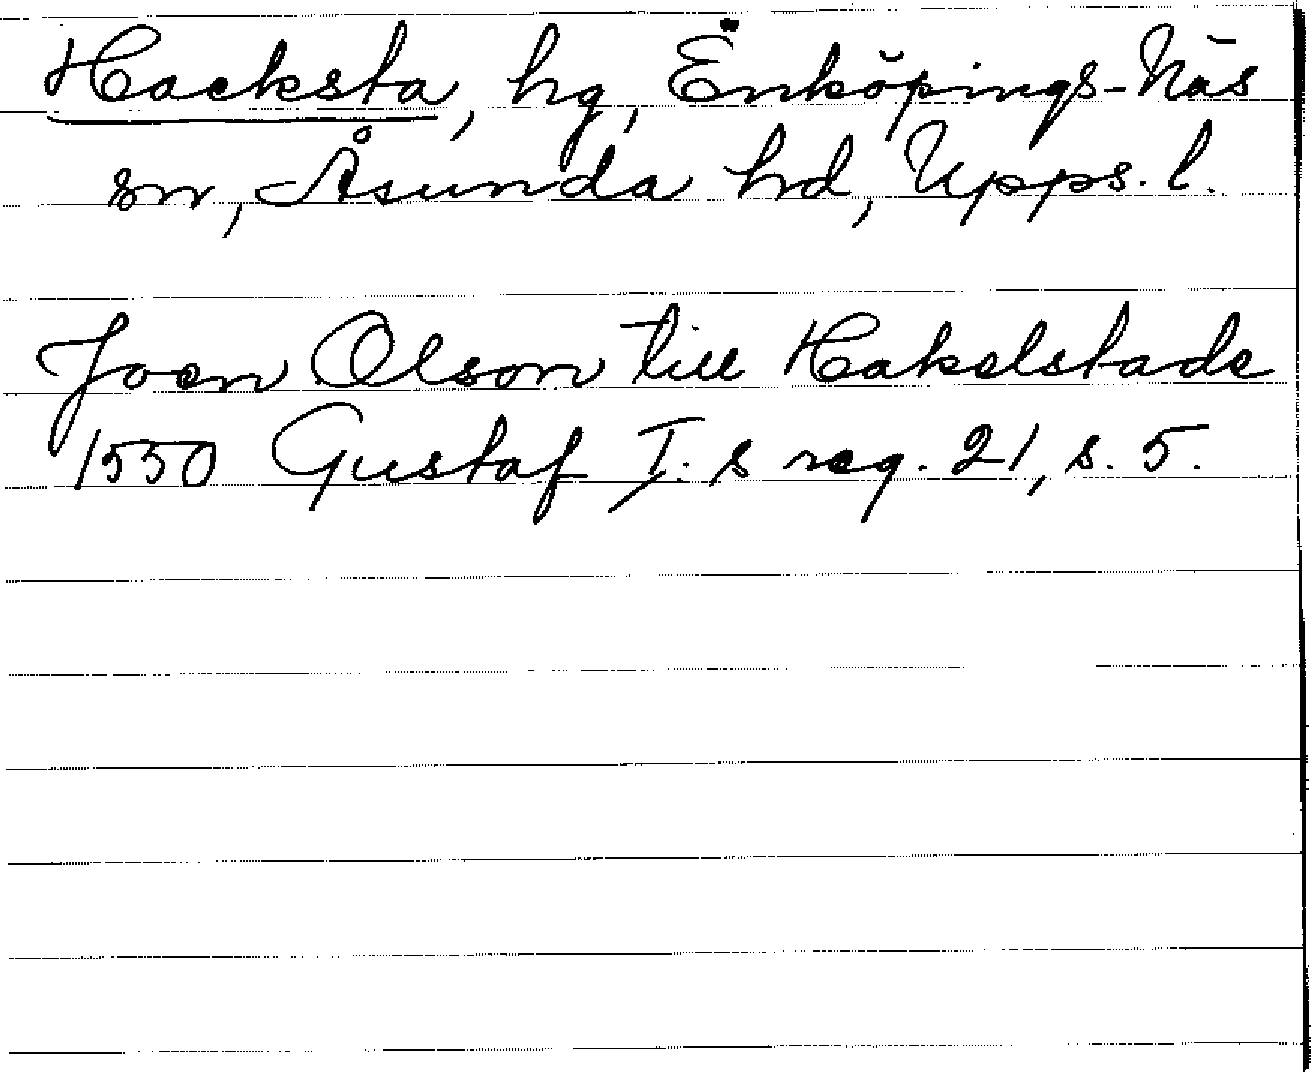 Hacksta, hg, Enköpings-Näs
sn, Åsunda hd, Upps. l.
Joen Olson till Hakelstade
1550 Gustaf I. s reg. 21, s. 5.